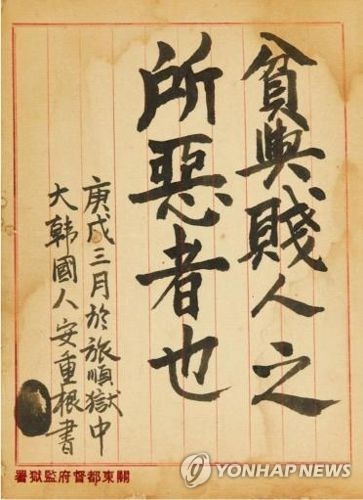 貧與賤人之
所惡者也
庚戌三月於旅順獄中
大韓國人安重根書
關東都督府監獄署
YONHAPNEWS